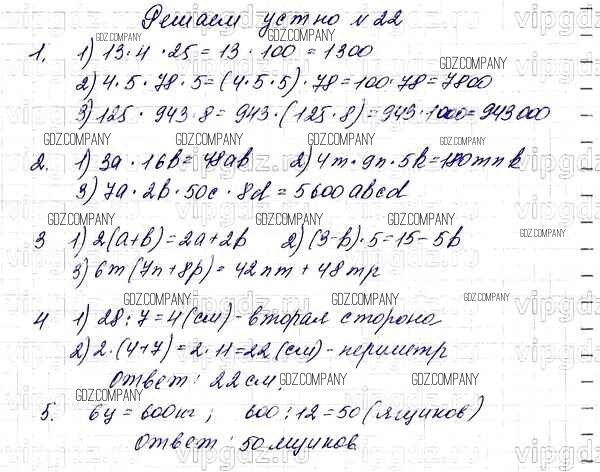 Решаем устно №22
1. 1) 13·4 · 25 = 13 · 100 = 1300
2) 4·5·78·5=(4·5·5)·78=100·78=7800
3) 125 · 943·8= 943·(125·8)=943·1000=943000
2. 1) 3a · 16b = 48ab 2) 4m·9n·5k=180mnk
3) 7a·2b·50c·8d = 5600abcd
3 1) 2(a+b)=2a+2b 2) (3-b)·5=15-5b
3) 6m(7n+8p)=42nm+48mp
4 1) 28:7=4(см)-вторая сторона
2) 2·(4+7)=2·11=22(см)-периметр
Ответ: 22 см.
5. 6ц=600кг; 600:12=50(ящиков)
Ответ: 50 ящиков